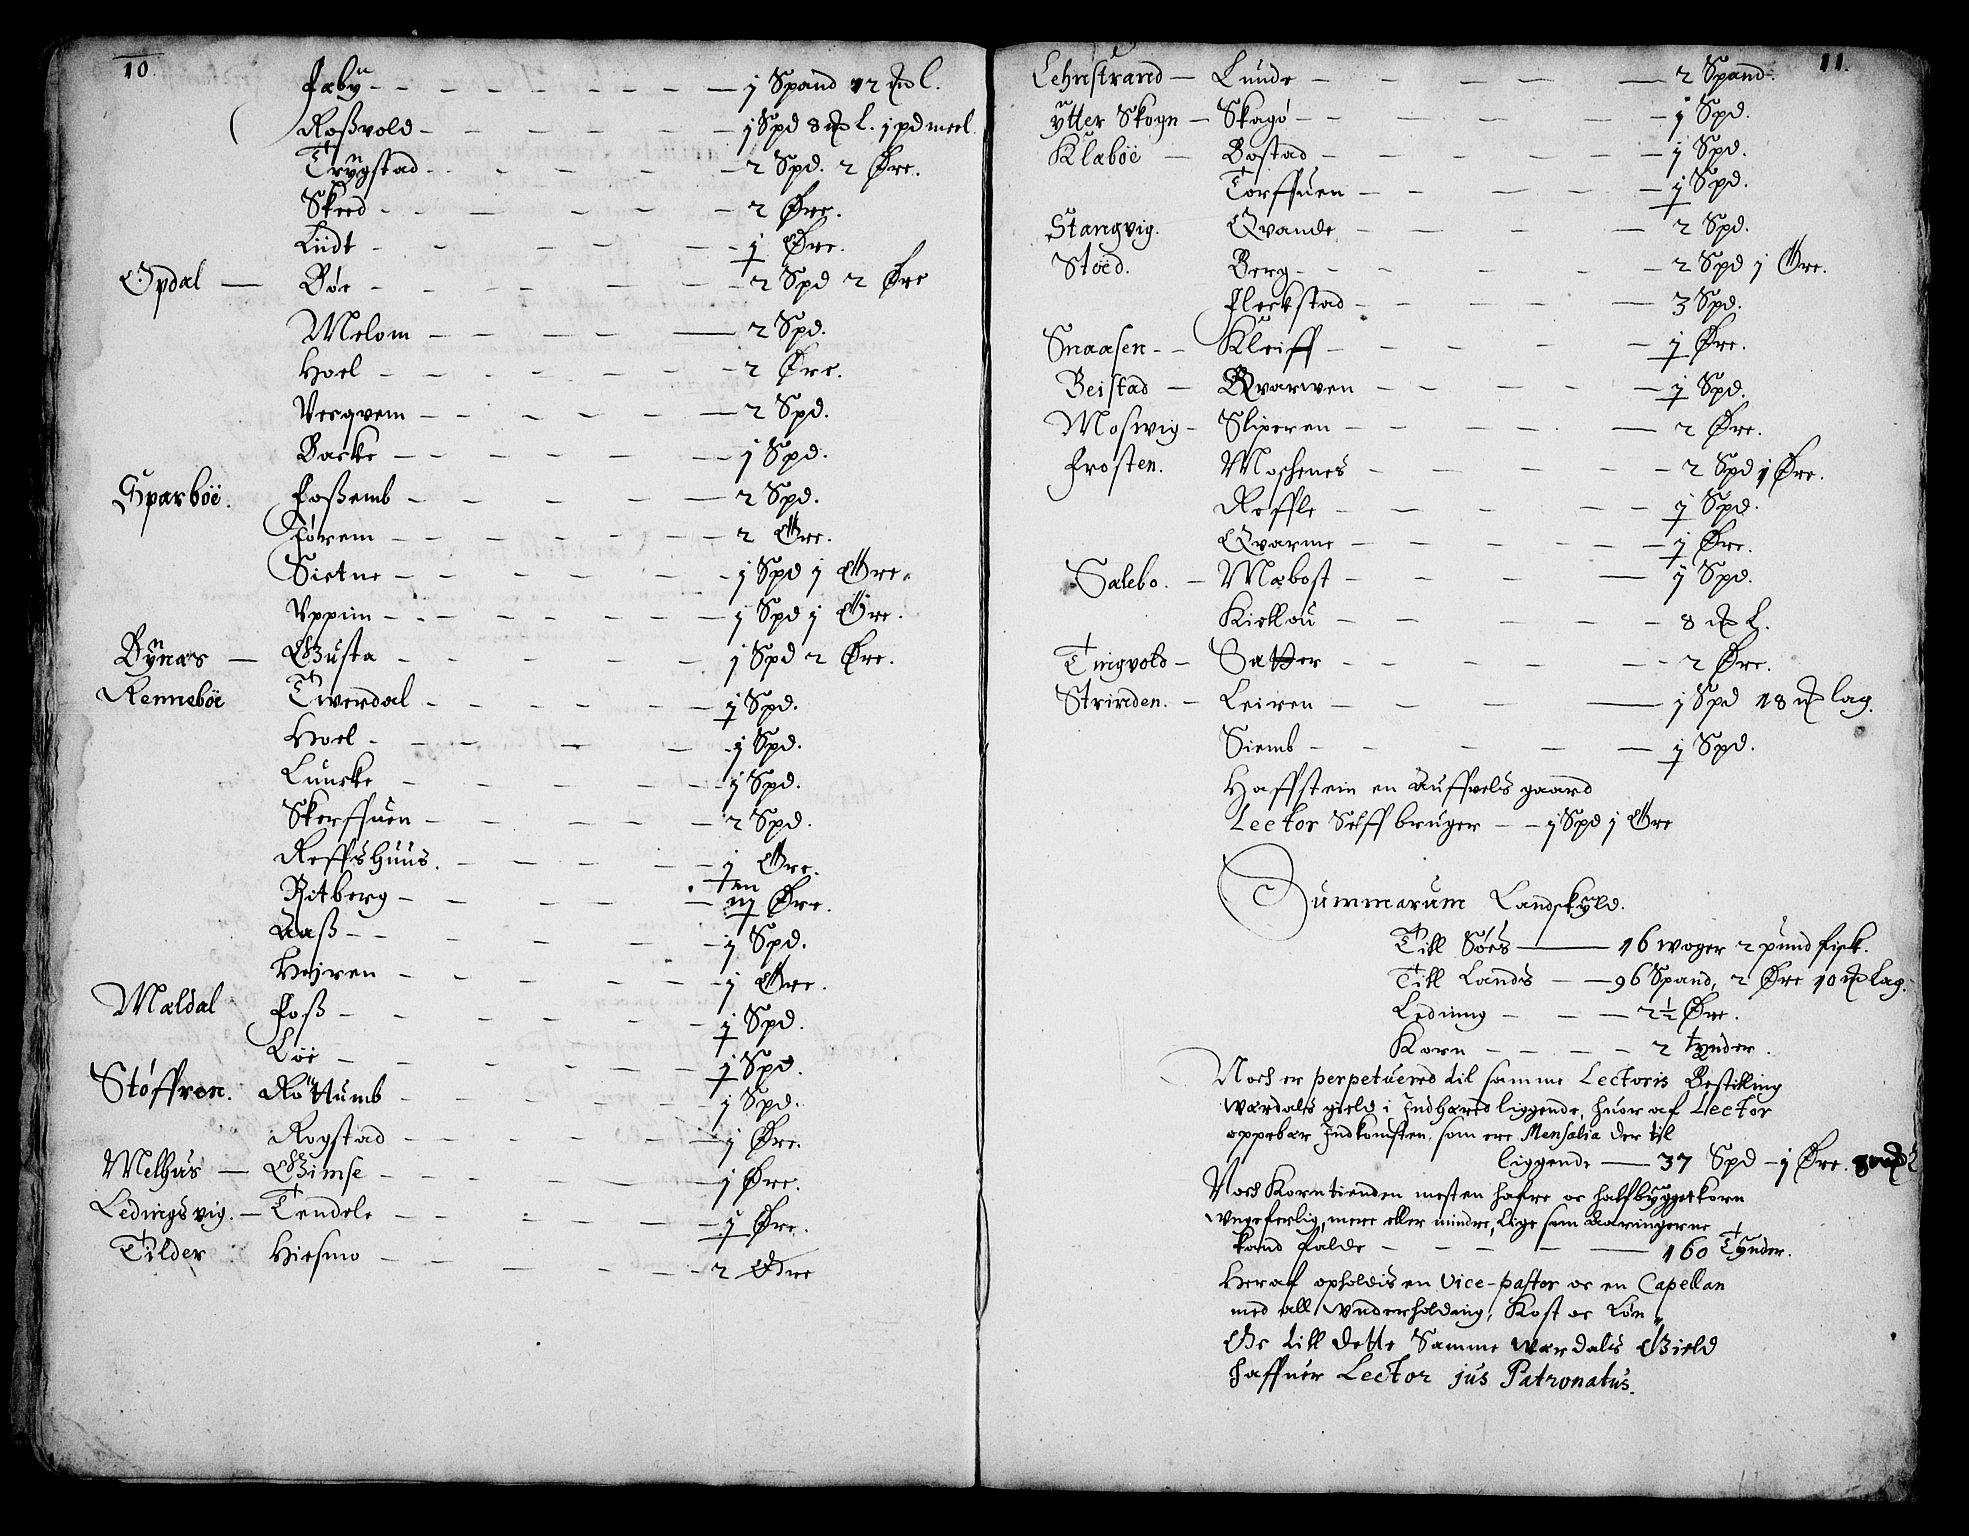 10.
Fæby - - - j Spand 12 ℔ l.
Roßvold - - - j Spd 8 ℔ l. j pd meel
Trygstad - - - 2 Spd. 2 Øre.
Skeed - - - 2 Øre.
Liidt - - - j Øre.
Opdal — Bøe - - - 2 Spd 2 Øre
Melom - - - 2 Spd.
Hoel - - - 2 Øre.
Vesqvem - - - 2 Spd.
Backe - - - j Spd.
Sparböe. Foßemb - - - 2 Spd.
Førem - - - 2 Øre.
Sietne - - - j Spd j Øre.
Vppim - - - j Spd j Øre.
Bynæs — Gusta - - - j Spd 2 Øre.
Renneböe Tverdal - - - j Spd.
Hoel - - - j Spd.
Luncke - - - j Spd.
Skorffuen - - - 2 Spd.
Reffshuus. - - - j Øre.
Ritberg - - - Øre.
Aaß - - - j Spd.
Hojren - - - j Øre.
Mældal Foß - - - j Spd.
Löe - - - j Spd.
Støffren. Røttumb - - - j Spd.
Rogstad - - - j Øre.
Melhus — Gimse - - - j Øre.
Ledingsvig. — Tendele - - - j Øre.
Tilder Hiesmo - - - 2 Øre
11.
Lehnstrand — Lunde - - - 2 Spand.
ytter Skogn — Skagø - - - j Spd.
Klæböe — Bostad - - - j Spd.
Torffuen - - - j Spd.
Stangvig. Qvande - - - 2 Spd.
Stöed. Berg - - - 2 Spd j Øre.
Fleckstad - - - 3 Spd.
Snaasen - - Kleiff - - - j Øre.
Beistad — Qvarven - - - j Spd.
Moswig - Sliperen - - - 2 Øre.
Frosten. Moshenes - - - 2 Spd j Øre.
Roffle - - - j Spd.
Qvarme - - - j Øre.
Salebo. — Mæbost - - - j Spd.
Kiellou - - - 8 ℔ l.
Tingvold — Satter - - - 2 Øre.
Strinden. — Leiren - - - j Spd 18 ℔ lag.
Siemb - - - j Spd.
Haffstein en Auffvels gaard
Lector Selff bruger - - j Spd j Øre
Summarum Landskyld.
Till Söes — 16 woger 2 pund fisk.
Till Lands — 96 Spand, 2 Øre 10 ℔ lag.
Leding - - - 2½ Øre.
Korn - - - 2 tynder.
Noch er perpetuered til samme Lectoris Bestilling
Værdals gield i Indhæred liggende, huor af Lector
oppebær Indkomsten, som ere Mensalia der til
liggende — 37 Spd - j Øre. 8 ℔ l
Noch Korntienden mesten hafre oc halfbyggetkorn
vngeferlig, mere eller mindre, lige som Aaringerne
kand falde - - - 160 Tynder.
Heraf opholdis en Vice-pastor oc en Capellan
med all Vnderholding, Kost oc Løn,
Oc till dette Samme Værdals Gield
haffuer Lector jus Patronatus.